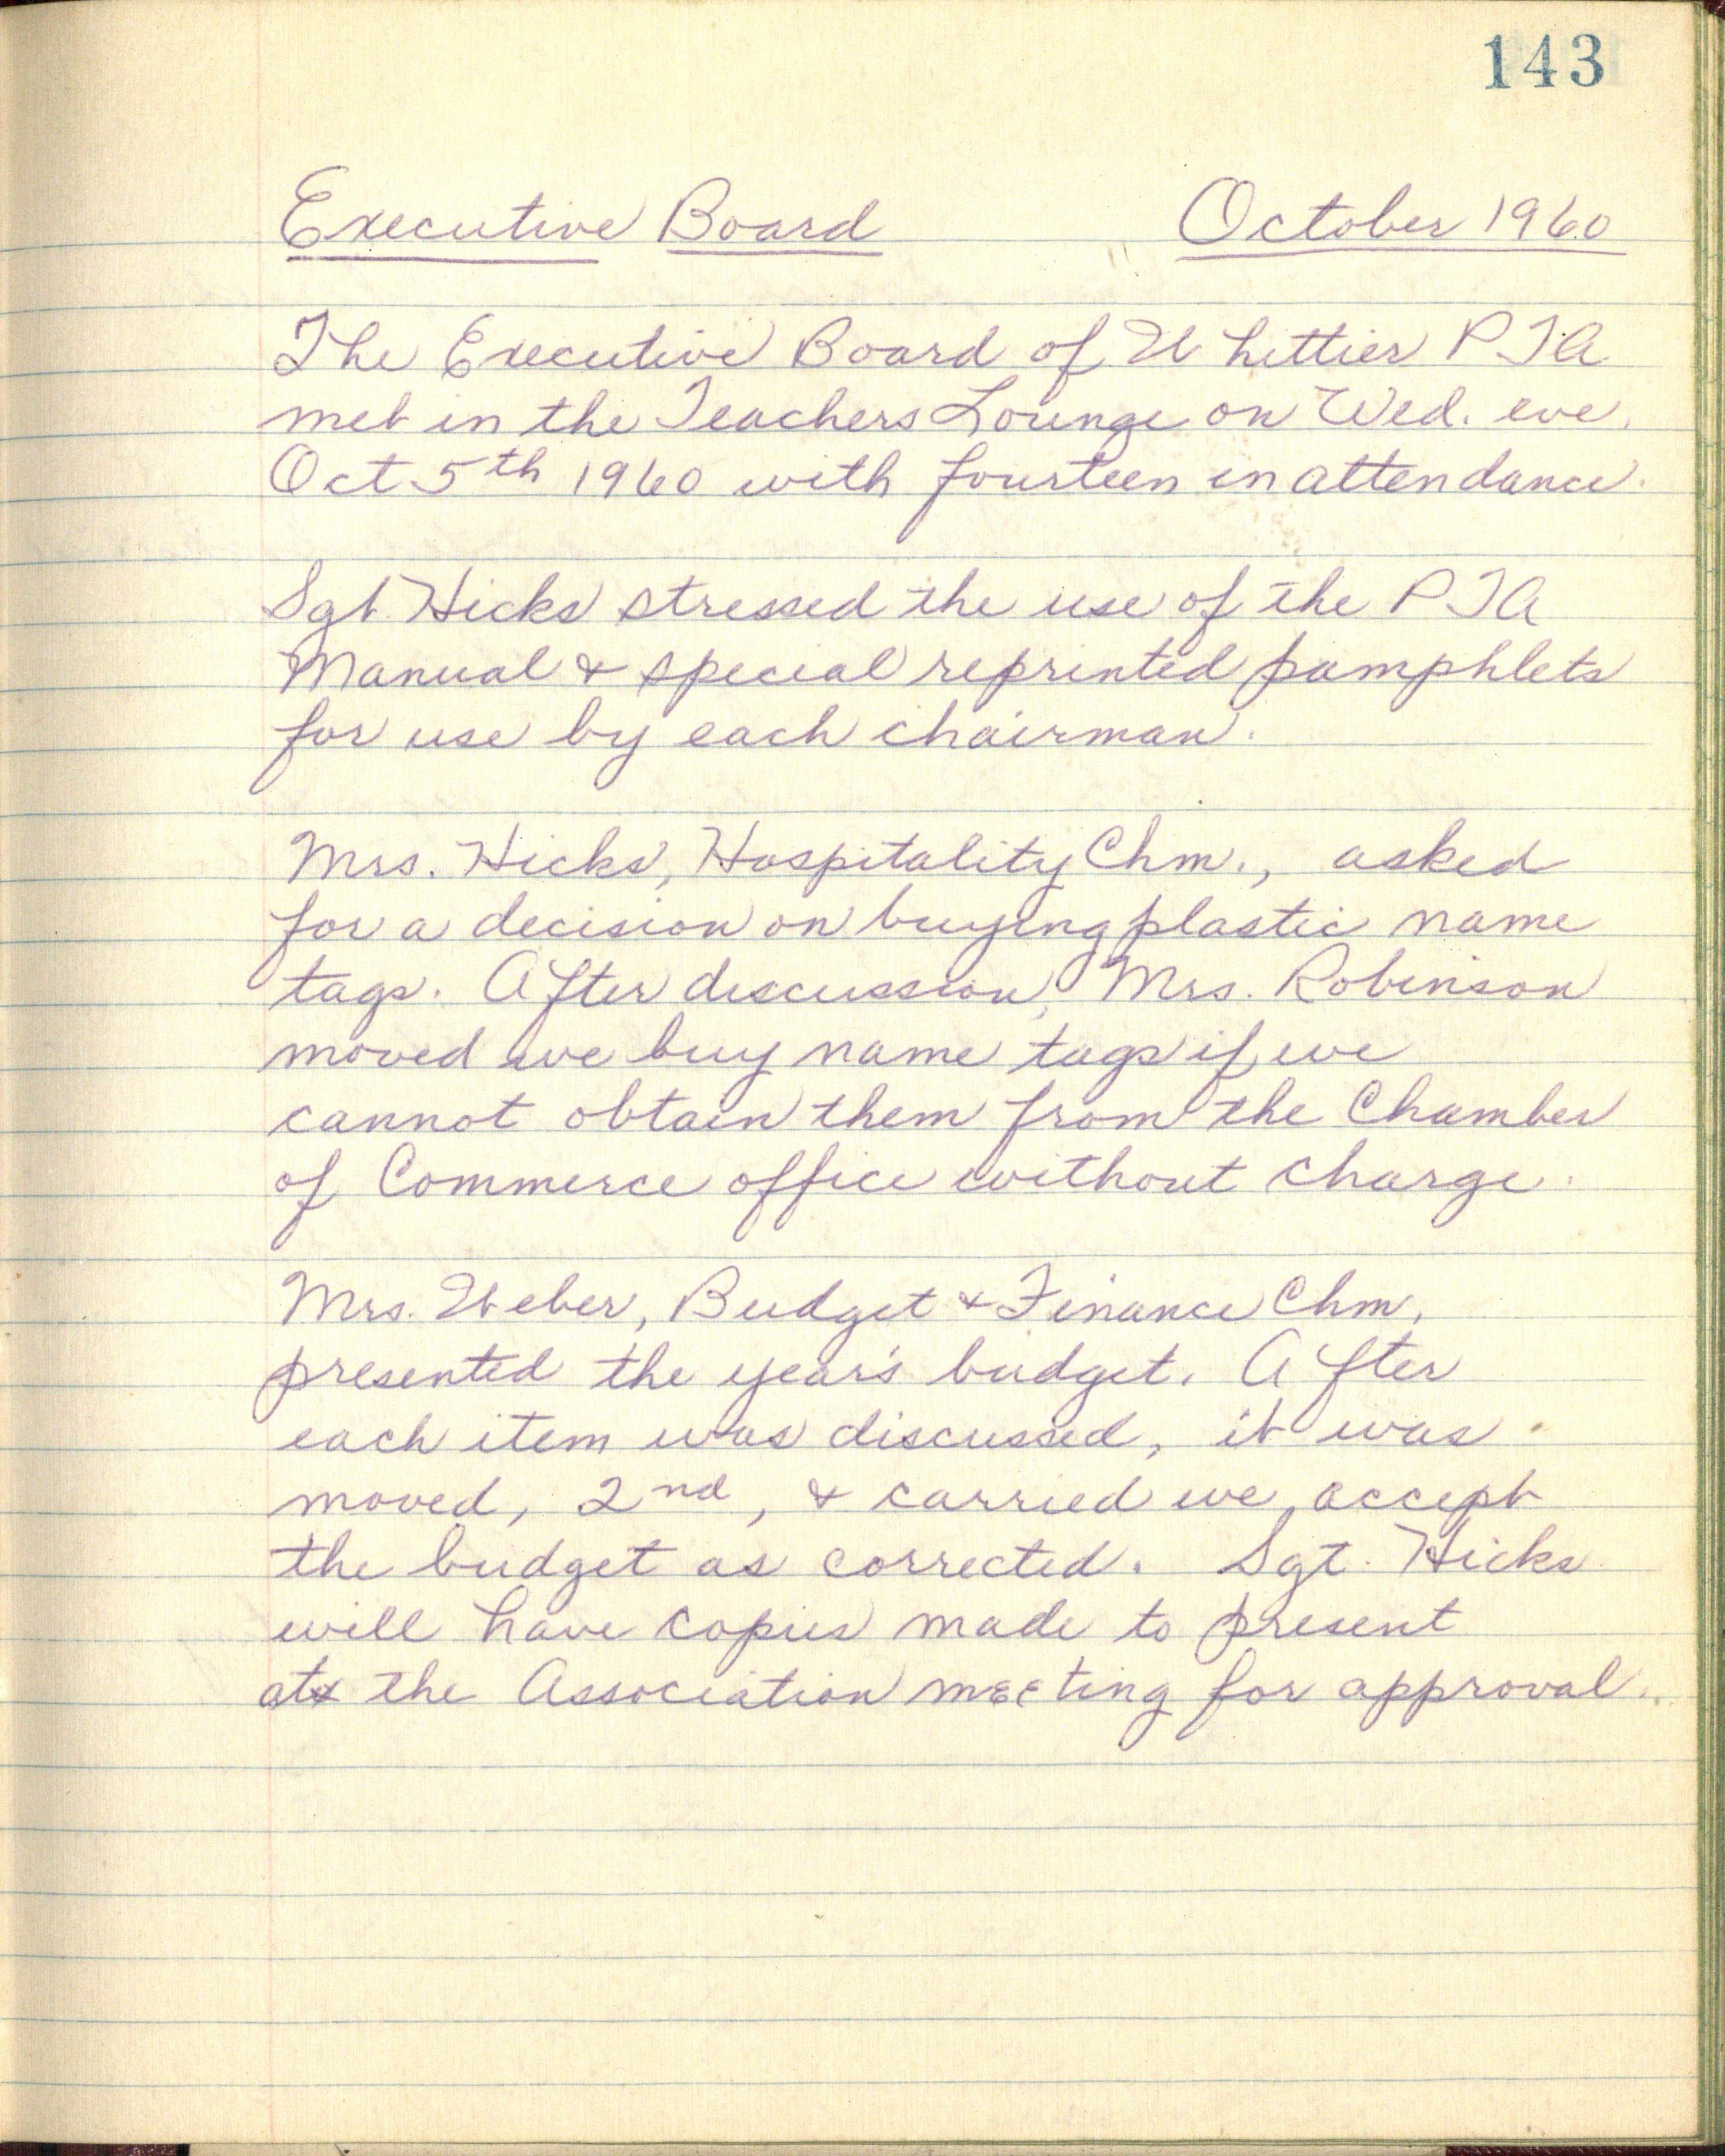 143
Executive Board October 1960
The Executive Board of Whittier PTA
met in the Teachers Lounge on Wed. eve.
Oct 5th 1960 with fourteen in attendance.
Sgt. Hicks stressed the use of the PTA
Manual & special reprinted pamphlets
for use by each chairman.
Mrs. Hicks, Hospitality Chm., asked
for a decision on buying plastic name
tags. After discussion, Mrs. Robinson
moved we buy name tags if we
cannot obtain them from the Chamber
of Commerce office without charge.
Mrs. Weber, Budget & Finance Chm,
presented the year's budget. After
each item was discussed, it was
moved, 2nd, & carried we accept
the budget as corrected. Sgt. Hicks
will have copies made to present
at the Association meeting for approval.